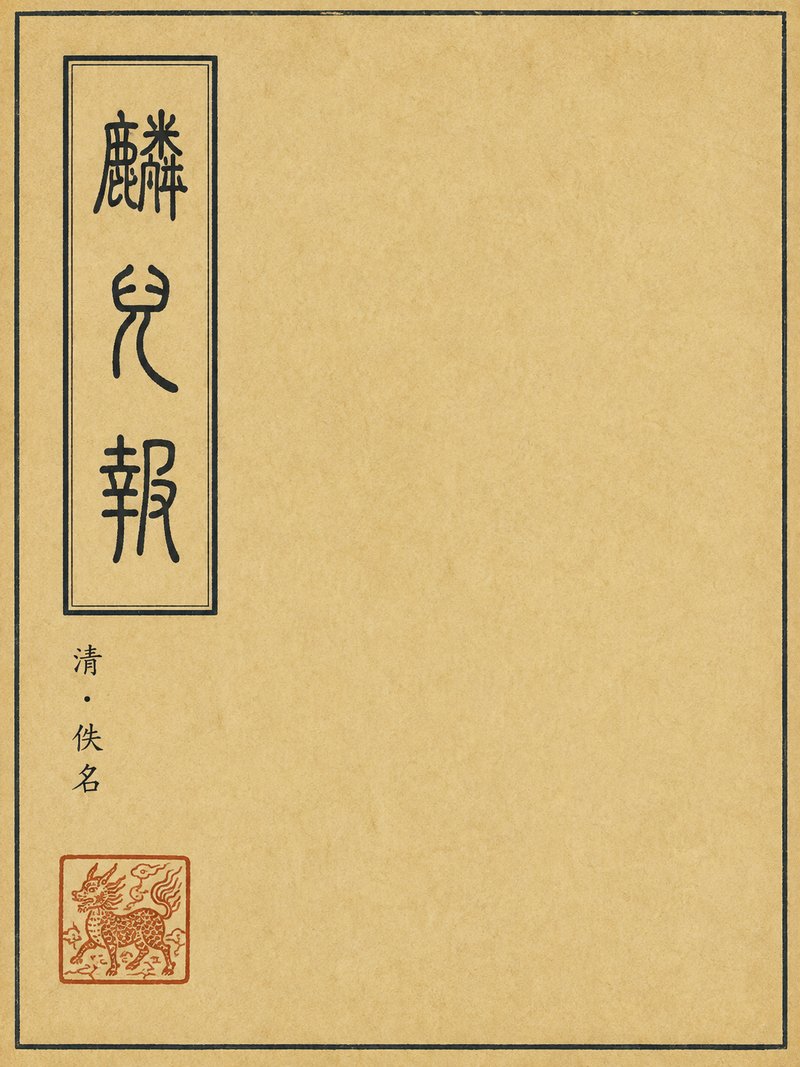 麟兒報
清·佚名